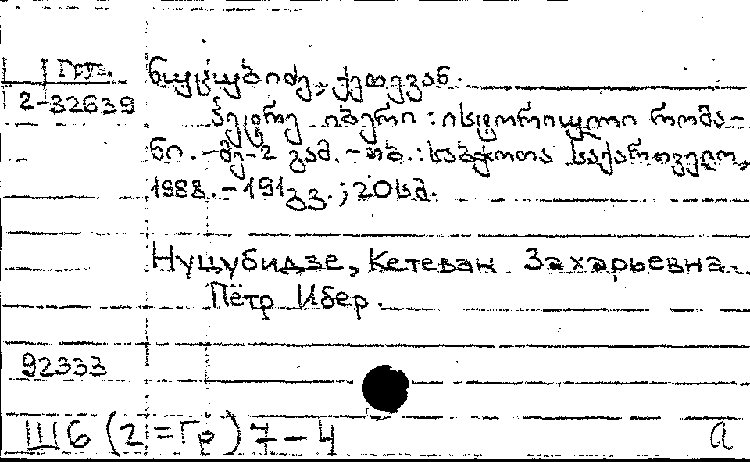 Груз.
2-32639
ნუცუბიძე, ქეთევან.
პეტრე იბერი : ისტორიული რომა-
ნი. - მე-2 გამ. - თბ. : საბჭოთა საქართველო,
1988. - 191გვ. ; 20სმ.
Нуцубидзе, Кетеван Захарьевна.
Пётр Ибер.
92333
Ш6 (2=Гр) 7-4
a